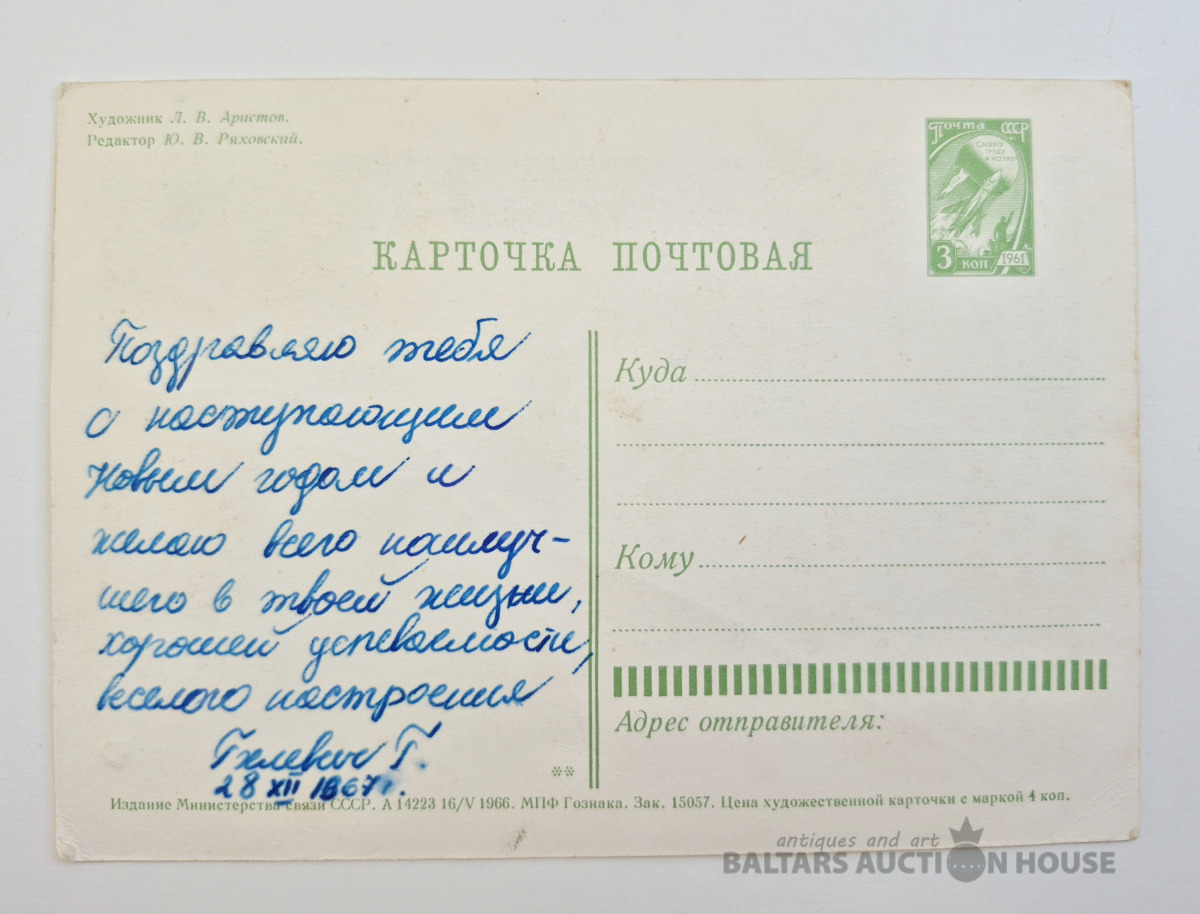 Художник Л. В. Аристов.
Редактор Ю. В. Ряховский.
Почта СССР
СЛАВА
ТРУДУ
И НАУКЕ!
3 КОП 1961
КАРТОЧКА ПОЧТОВАЯ
Поздравляю тебя
с наступающим
Новым годом и
желаю всего наилуч-
шего в твоей жизни,
хорошей успеваемости,
веселого настроения
Г.
28 XII 1967 г.
Куда
Кому
Адрес отправителя:
**
Издание Министерства связи СССР. А 14223 16/V 1966. МПФ Гознака. Зак. 15057. Цена художественной карточки с маркой 4 коп.
antiques and art
BALTARS AUCTION HOUSE